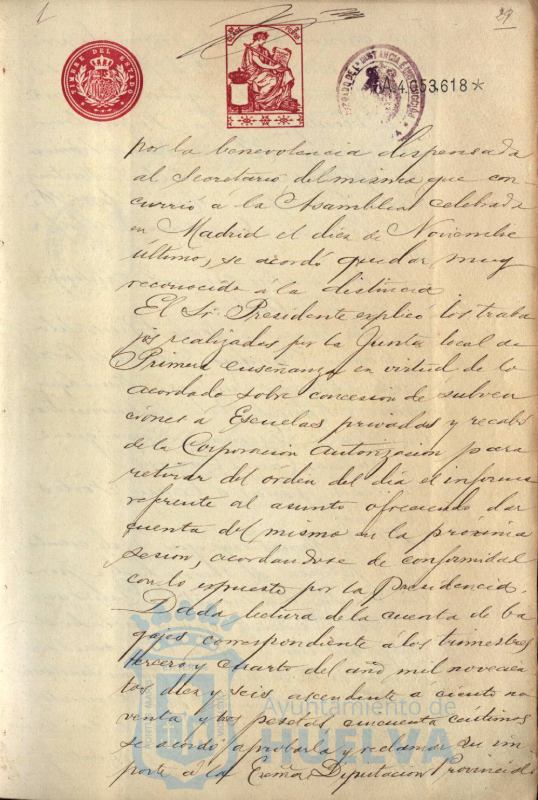 1
29
TIMBRE DEL ESTADO
A.4.053.618*
por la benevolencia dispensada
al Secretario del misma que con
currió a la Asamblea celebrada
en Madrid el diez de Noviembre
último, se acordó quedar muy
reconocida á la distincia
El Sr. Presidente explicó los traba
jos realizados por la Junta local de
Primera enseñanza en virtud de lo
acordado sobre concesion de subven
ciones á Escuelas privadas y recabó
de la Corporacion autorizacion para
retirar del órden del dia el informe
referente al asunto ofreciendo dar
cuenta del mismo en la próxima
sesion, acordandose de conformidad
con lo expuesto por la Presidencia.
Dada lectura de la cuenta de ba
gajes, correspondiente á los trimestres
tercero y cuarto del año mil novecien
tos diez y seis ascendente a ciento no
venta y tres pesetas cincuenta céntimos
se acordó aprobarla y reclamar su im
porte á la Excma. Diputacion Provincial
Ayuntamiento de
HUELVA